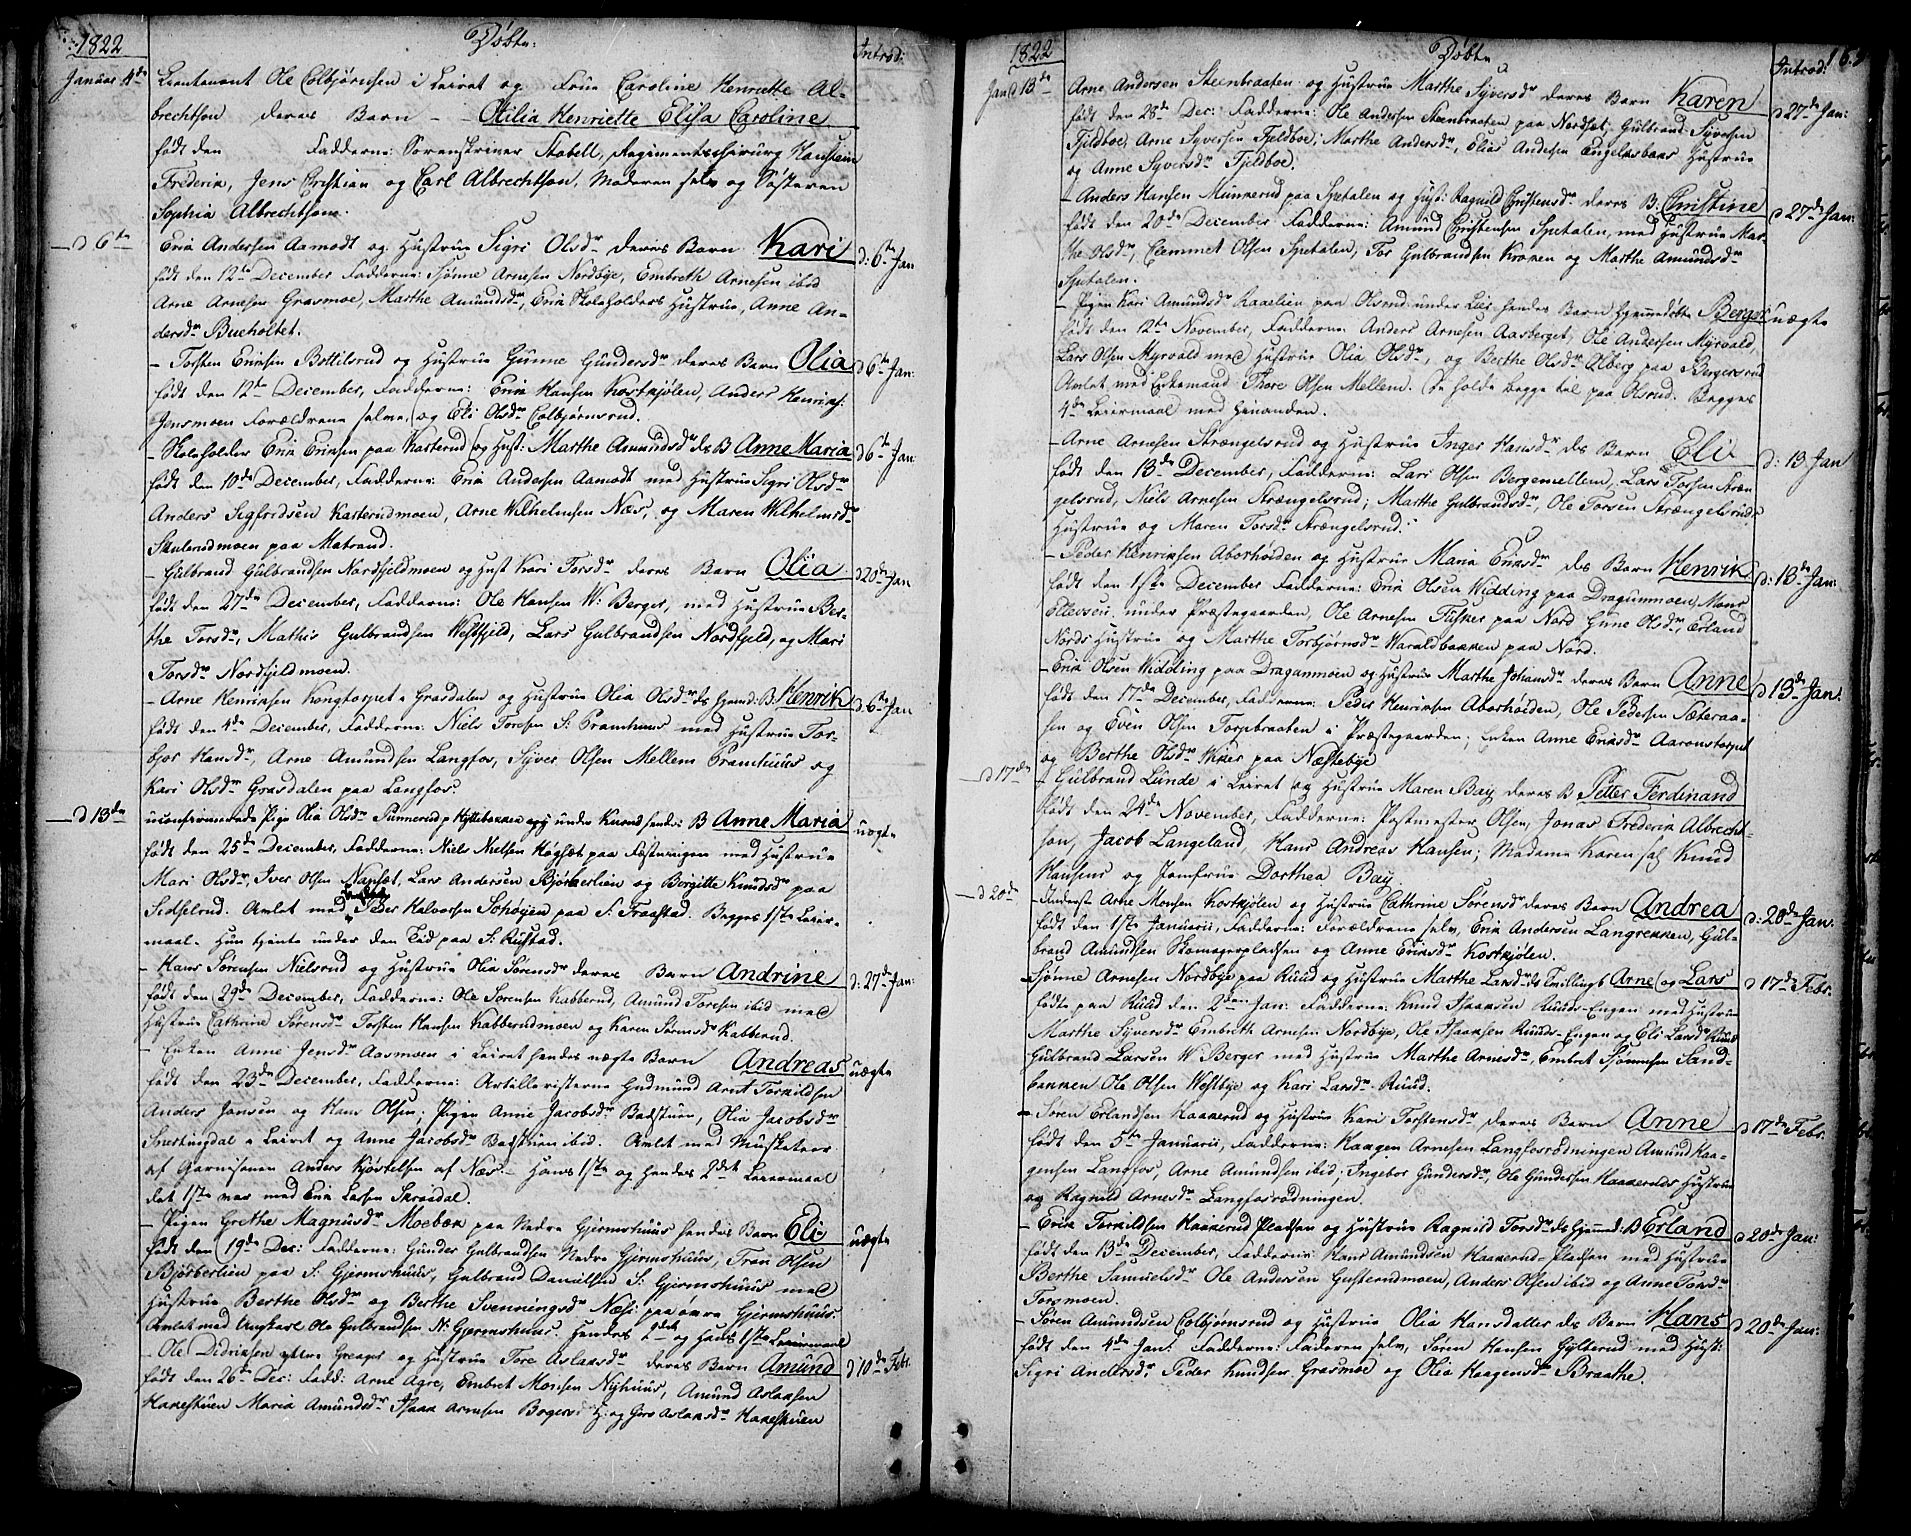 1822
Døbte:
Introd:
Januar 4de Lieutenant Ole Colbjørnsen i Leiret og Frue Caroline Henriette Al-
brechtson deres Barn - Otilia Henriette Elisa Caroline
født den Fadderne: Sorenskriver Stabell, Regimentschirurg Hanstein
Frederik, Jens Christian og Carl Albrechtson, Moderen selv og Søsteren
Sophia Albrechtson.
d 6te Erik Andersen Aamodt og Hustrue Sigri Olsdr deres Barn Kari d: 6te Jan
født den 12te December Fadderne: Sjønne Arnesen Nordbye, Embreth Arnesen ibid
Arne Arnesen Grasmoe, Marthe Amundsdr, Erik Skoleholders Hustrue, Anne An-
dersdr Bueholtet.
- Torsten Eriksen Bottilsrud og Hustrue Gunne Gundersdr deres Barn Olia d 6te Jan:
født den 12te December, Fadderne: Erik Hansen Kostkjølen, Anders Henriks:
Jensmoen Forældrene selme, og Eli Olsdr Colbjørnsrud.
- Skoleholder Erik Eriksen paa Karterud og Hust: Marthe Amundsdr ds B Anne Maria d 6te Jan:
født den 10de December, Fadderne: Erik Andersen Aamodt med Hustrue Sigri Olsdr
Anders Sigfridsen Karterudmoen, Arne Wilhelmsen Næs, og Maren Wilhelmsdr
Skulerudmoen paa Matrand.
- Gulbrand Gulbrandsen Nordfjeldmoen og Hust Kari Torsdr deres Barn Olia d 20de Jan
født den 27de December, Fadderne: Ole Hansen W: Berger, med Hustrue Ber-
the Torsdr, Mathis Gulbrandsen Westfjeld, Lars Gulbrandsen Nordfjeld, og Mari
Torsdr Nordfjeldmoen.
- Arne Henriksen Kongtorpet i Grasdalen og Hustrue Olia Olsdr ds hjemd: B. Henrik d. 6te Jan
født den 4de December, Fadderne: Niels Toresen S: Pramhuus med Hustrue Tor-
bjor Hansdr, Arne Amundsen Langfos, Syver Olsen Mellem Pramhuus og
Kari Olsdr Grasdalen paa Langfos.
d 13de uconfirmerede Pige Olia Olsdr Sunnerud p Hyttebakken under Kurud hendes: B Anne Maria uægte
født den 25de December, Fadderne: Niels Nielsen Høgsæt paa Festningen med Hustrue
Mari Olsdr, Iver Olsen Napset, Lars Andersen Bjørkerlien og Borgitte Knudsdr paa
Sidselrud. Avlet med Peder Halvorsen Sohøgen paa S: Traastad. Begges 1ste Leier-
maal. Hun tjente under den Tid paa S: Rustad.
- Hans Sørensen Nielsrud og Hustrue Olia Sørensdr deres Barn Andrine d. 27de Jan:
født den 29de December, Fadderne: Ole Sørensen Kabberud, Amund Toresen ibid med
Hustrue Cathrine Sørensdr Torsten Hansen Kabberudmoen og Karen Sørensdr Kabberud.
- Enken Anne Jensdr Aasmoen i Leiret hendes uægte Barn Andreas uægte
født den 23de December, Fadderne: Artilleristerne Gudmund Arnt Torkildsen
Anders Jansen og Hans Olsen; Pigen Anne Jacobsdr Badstuen, Olia Jacobsdr
Snertingdal i Leiret og Anne Jacobsdr Badstuen ibid. Avlet med Musketeer
af Garnisonen Anders Kjøstelsen af Næs. Hans 1ste og hendes 2det Leiermaal
det 1ste var med Erik Larsen Skreidal.
- Pigen Grethe Magnusdr Moebæk paa Nedre Gjermshuus hendes Barn Eli uægte
født den 19de Dec: Fadderne: Gunder Gulbrandsen Nedre Gjermshuus, Tron Olsen
Bjørkerlien paa S: Gjermshuus, Gulbrand Danielsen S: Gjermshuus med
Hustrue Berthe Olsdr og Berthe Svenningsdr Næss: paa øvre Gjermshuus.
Avlet med Ungkarl Ole Gulbrandsen N: Gjermshuus. Hendes 2det og Hans 1ste Leiermaal
- Ole Didriksen yttre Greager og Hustrue Tore Aslaksdr deres Barn Amund d 10de Febr.
født den 26de Dec: Fadd: Arne Agre, Embret Monsen Nyhuus, Amund Aslaksen
Hakestuen Maria Amundsdr Isaak Arnesen Bogers H: og Goro Aslaksdr Hakestuen
1822
Døbte
Introd:
Jan d 13de Arne Andersen Steenbraaten og Hustrue Marthe Syversdr deres Barn Karen d 27de Jan:
født den 28de Dec: Fadderne: Ole Andersen Steenbraaten paa Nordset; Gulbrand Syversen
Fjeldboe, Arne Syversen Fjeldboe, Marthe Andersdr, Elias Andersen Engelasbaks Hustrue
og Anne Syversdr Fjeldboe.
- Anders Hansen Munkerud paa Spetalen og Hust: Ragnild Christensdr deres B: Christine d 27de Jan:
født den 20de December Fadderne: Amund Christensen Spetalen, med Hustrue Mar-
the Olsdr, Clemmet Olsen Spetalen, Tor Gulbrandsen Kroken og Marthe Amundsdr
Spetalen.
- Pigen Kari Amundsdr Kaaelien paa Olsrud under Lier hendes Barn hjemmedøbte Berger uægte
født den 12te November, Fadderne: Anders Arnesen Aasberget, Ole Andersen Myrvald,
Lars Olsen Myrvald med Hustrue Olia Olsdr, og Berthe Olsdr Olberg paa Bergersrud
Avlet med Enkemand Thore Olsen Mellem. De holdt begge til paa Olsrud. Begges
4de Leiermaal med hinanden.
- Arne Arnesen Strængelsrud og Hustrue Inger Hansdr ds Barn Eli d: 13 Jan
født den 13de December, Fadderne: Lars Olsen Bergemellem, Lars Torsen Stræn
gelsrud, Niels Arnesen Strængelsrud; Marthe Gulbrandsdr, Ole Torsen Strængelsruds
Hustrue og Maren Torsdr Strængelsrud.
- Peder Henriksen Aborhøiden og Hustrue Maria Eriksdr ds Barn Henrik d: 13de Jan:
født den 1ste December Fadderne: Erik Olsen Widding paa Dragonmoen, Mons
Ellevsen, under Præstegaarden, Ole Arnesen Fusker paa Nord Gune Olsdr, Erland
Nords Hustrue og Marthe Torbjørnsdr Waraldbakken paa Nord.
- Erik Olsen Widding paa Dragonmoen og Hustrue Marthe Johansdr deres Barn Anne d 13de Jan:
født den 17de December, Fadderne: Peder Henriksen Aborhøiden, Ole Pedersen Sæteraa-
sen og Even Olsen Torpbraaten i Præstegaarden; Enken Anne Eriksdr Aaronstorpet
og Berthe Olsdr Viker paa Næstebye
d 17de - Gulbrand Lunde i Leiret og Hustrue Maren Bay deres B Petter Ferdinand
født den 24de November, Fadderne: Postmester Olsen, Jonas Frederik Albrecht-
son, Jacob Langeland, Hans Andreas Hansen; Madame Karen sal Knud
Hansens og Jomfrue Dorthea Bay
d 20de - Inderste Arne Monsen Kostkjølen og Hustrue Cathrine Sørensdr deres Barn Andrea d: 20de Jan:
født den 1ste Januarii, Fadderne: Forældrene selv, Erik Andersen Langrekken, Gul-
brand Amundsen Skomagerpladsen og Anne Eriksdr Kostkjølen.
- Sjønne Arnesen Nordbye paa Ruud og Hustrue Marthe Larsdr ds Tvillingb Arne og Lars d 17de Febr.
født paa Ruud den 2den Jan: Fadderne: Knud Isaaksen Ruuds-Engen med Hustrue
Marthe Syversdr Embreth Arnesen Nordbye, Ole Isaaksen Ruuds-Engen og Eli Larsdr Ruud
Gulbrand Larsen W Berger med Hustrue Marthe Arnesdr, Embret Sjønnesen Sand-
bakken Ole Olsen Westbye og Kari Larsdr Ruud.
- Søren Erlandsen Kaakerud og Hustrue Kari Torstensdr deres Barn Anne d 17de Febr.
født den 5te Januarii, Fadderne: Haagen Arnesen Langfosrødningen Amund Haa-
gensen Langfos, Arne Amundsen ibid; Ingebor Gundersdr, Ole Gundersen Kaakeruds Hustrue
og Ragnild Arnesdr Langfosrødningen.
- Erik Torkildsen Kaakerud Pladsen og Hustrue Ragnild Torsdr ds hjemd: B Erland d 20de Jan:
født den 13de December, Fadderne: Hans Amundsen Kaakerud-Pladsen med Hustrue
Berthe Samuelsdr Ole Andersen Gusterudmoen, Anders Olsen ibid og Anne Torsdr
Torsmoen.
- Søren Amundsen Colbjørnsrud og Hustrue Olia Hansdatter ds Barn Hans d 20de Jan:
født den 4de Jan: Fadderne: Faderen selv, Søren Hansen Gylterud med Hust:
Sigri Andersdr, Peder Knudsen Grasmoe og Olia Haagensdr Braathe.